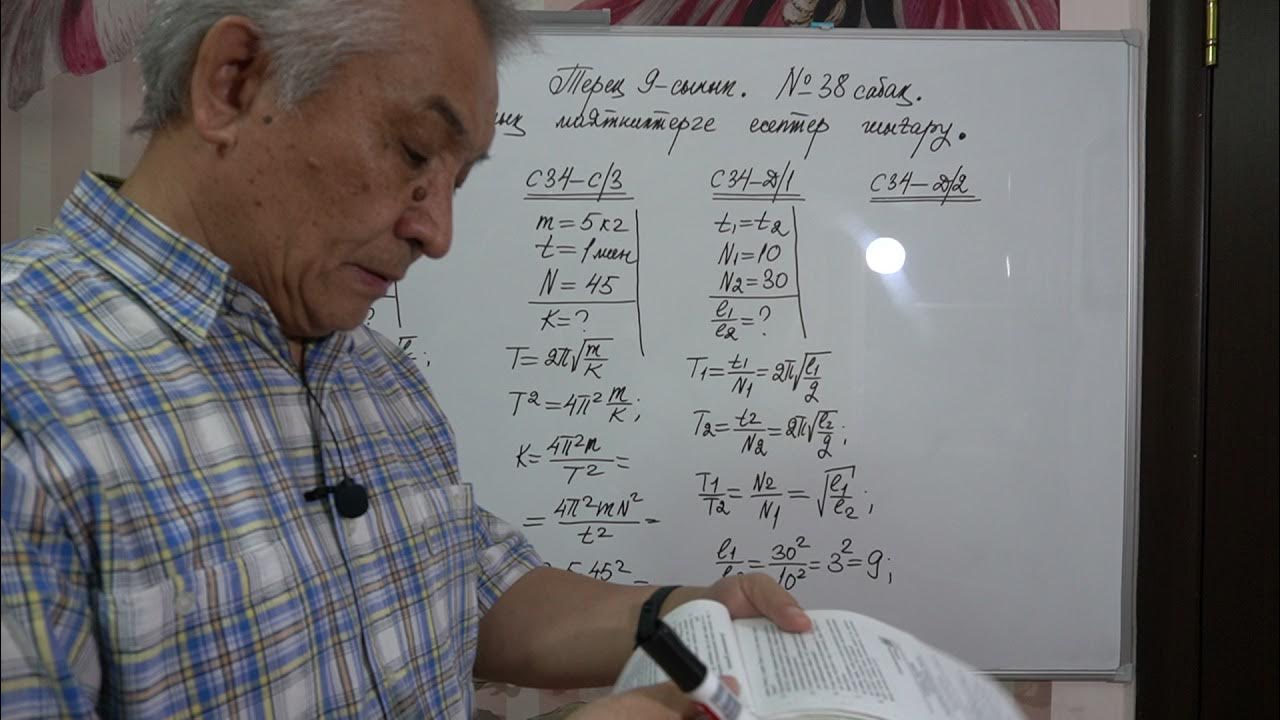 Терең 9-сынып. №38 сабақ.
маятниктерге есептер шығару.
C34-C/3
m=5кг
t=1мин
N=45
K=?
T=2π√m/K
T²=4π² m/K;
K=4π²m/T²=
=4π²mN²/t²=
5·45²
C34-Д/1
t₁=t₂
N₁=10
N₂=30
ℓ₁/ℓ₂=?
T₁=t₁/N₁=2π√ℓ₁/g
T₂=t₂/N₂=2π√ℓ₂/g;
T₁/T₂=N₂/N₁=√ℓ₁/ℓ₂;
ℓ₁/ℓ =30²/10²=3²=9;
C34-Д/2